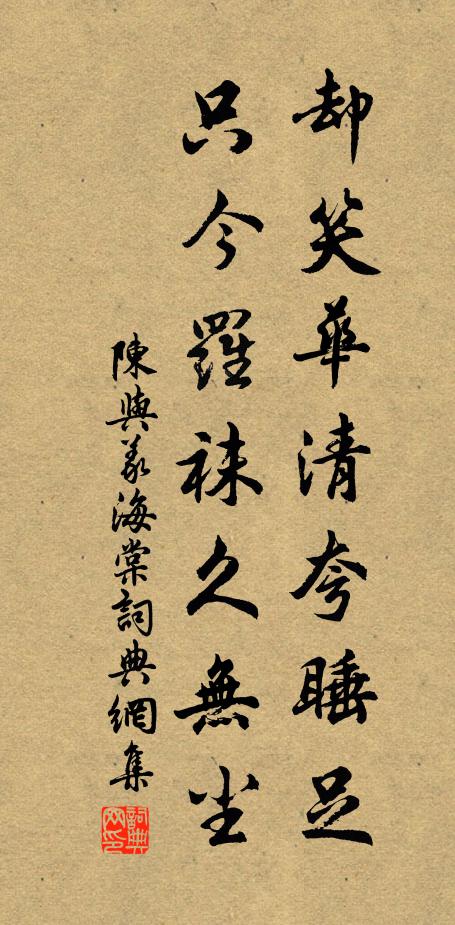 却笑華清夸睡足
只今羅袜久無尘
陳與義海棠詞典網集
詞典网印